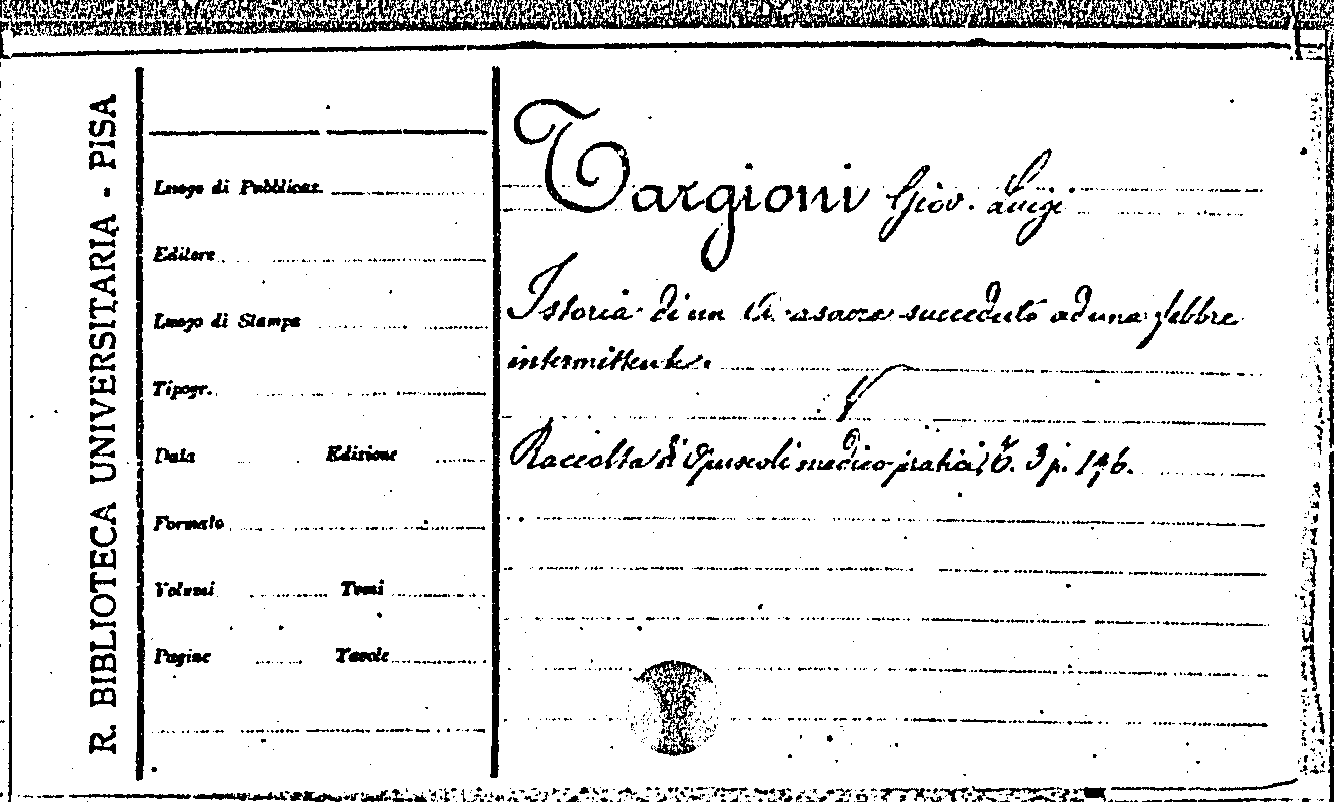 R. BIBLIOTECA UNIVERSITARIA - PISA
Luogo di Pubblicaz.
Editore
Luogo di Stampa
Tipogr.
Data Edizione
Formato
Volumi Tomi
Pagine Tavole
Targioni Giov. Luigi
Istoria di un succeduto ad una febbre
intermittente.
Raccolta di Opuscoli medico-pratici, T. 3 p.